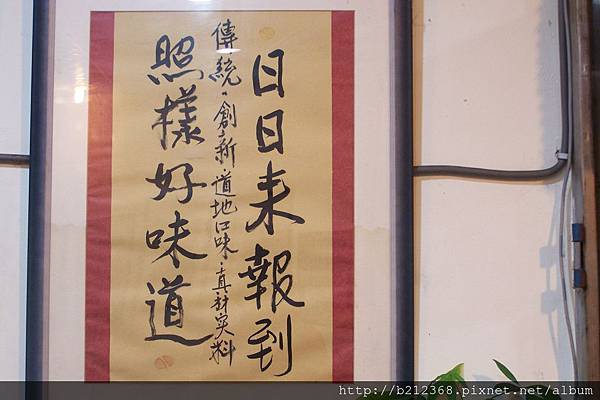 日日來報到
傳統、創新道地口味、真材实料
照樣好味道
http://b212368.pixnet.net/album